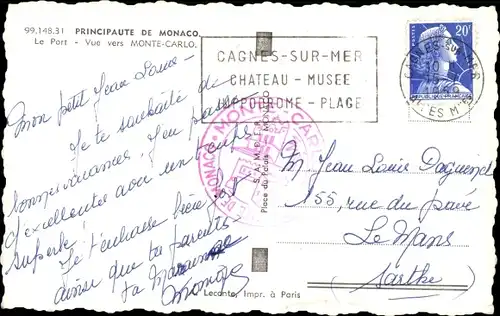 99.148.31 PRINCIPAUTE DE MONACO.
Le Port - Vue vers MONTE-CARLO.
Mon petit Jean Louis -
Je te souhaite de
bonnes vacances. J'en passe
d'excellentes avec un temps
superbe!
Je t'embrasse bien fort
ainsi que tes parents.
Ta Marraine
Monique
CAGNES-SUR-MER
CHATEAU - MUSEE
HIPPODROME - PLAGE
POSTES 20F
REPUBLIQUE FRANÇAISE
CAGNES SUR MER
MONTE-CARLO
MONACO
Place du Palais
MONACO
M. Jean Louis Daguenet
155, rue du pavé
Le Mans
(Sarthe)
Leconte, Impr. à Paris